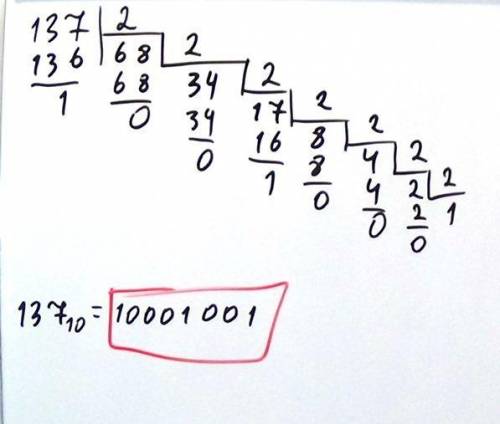 137 2
136 68 2
1 68 34 2
0 34 17 2
0 16 8 2
1 8 4 2
0 4 2 2
0 2 1
0
137₁₀ = 10001001